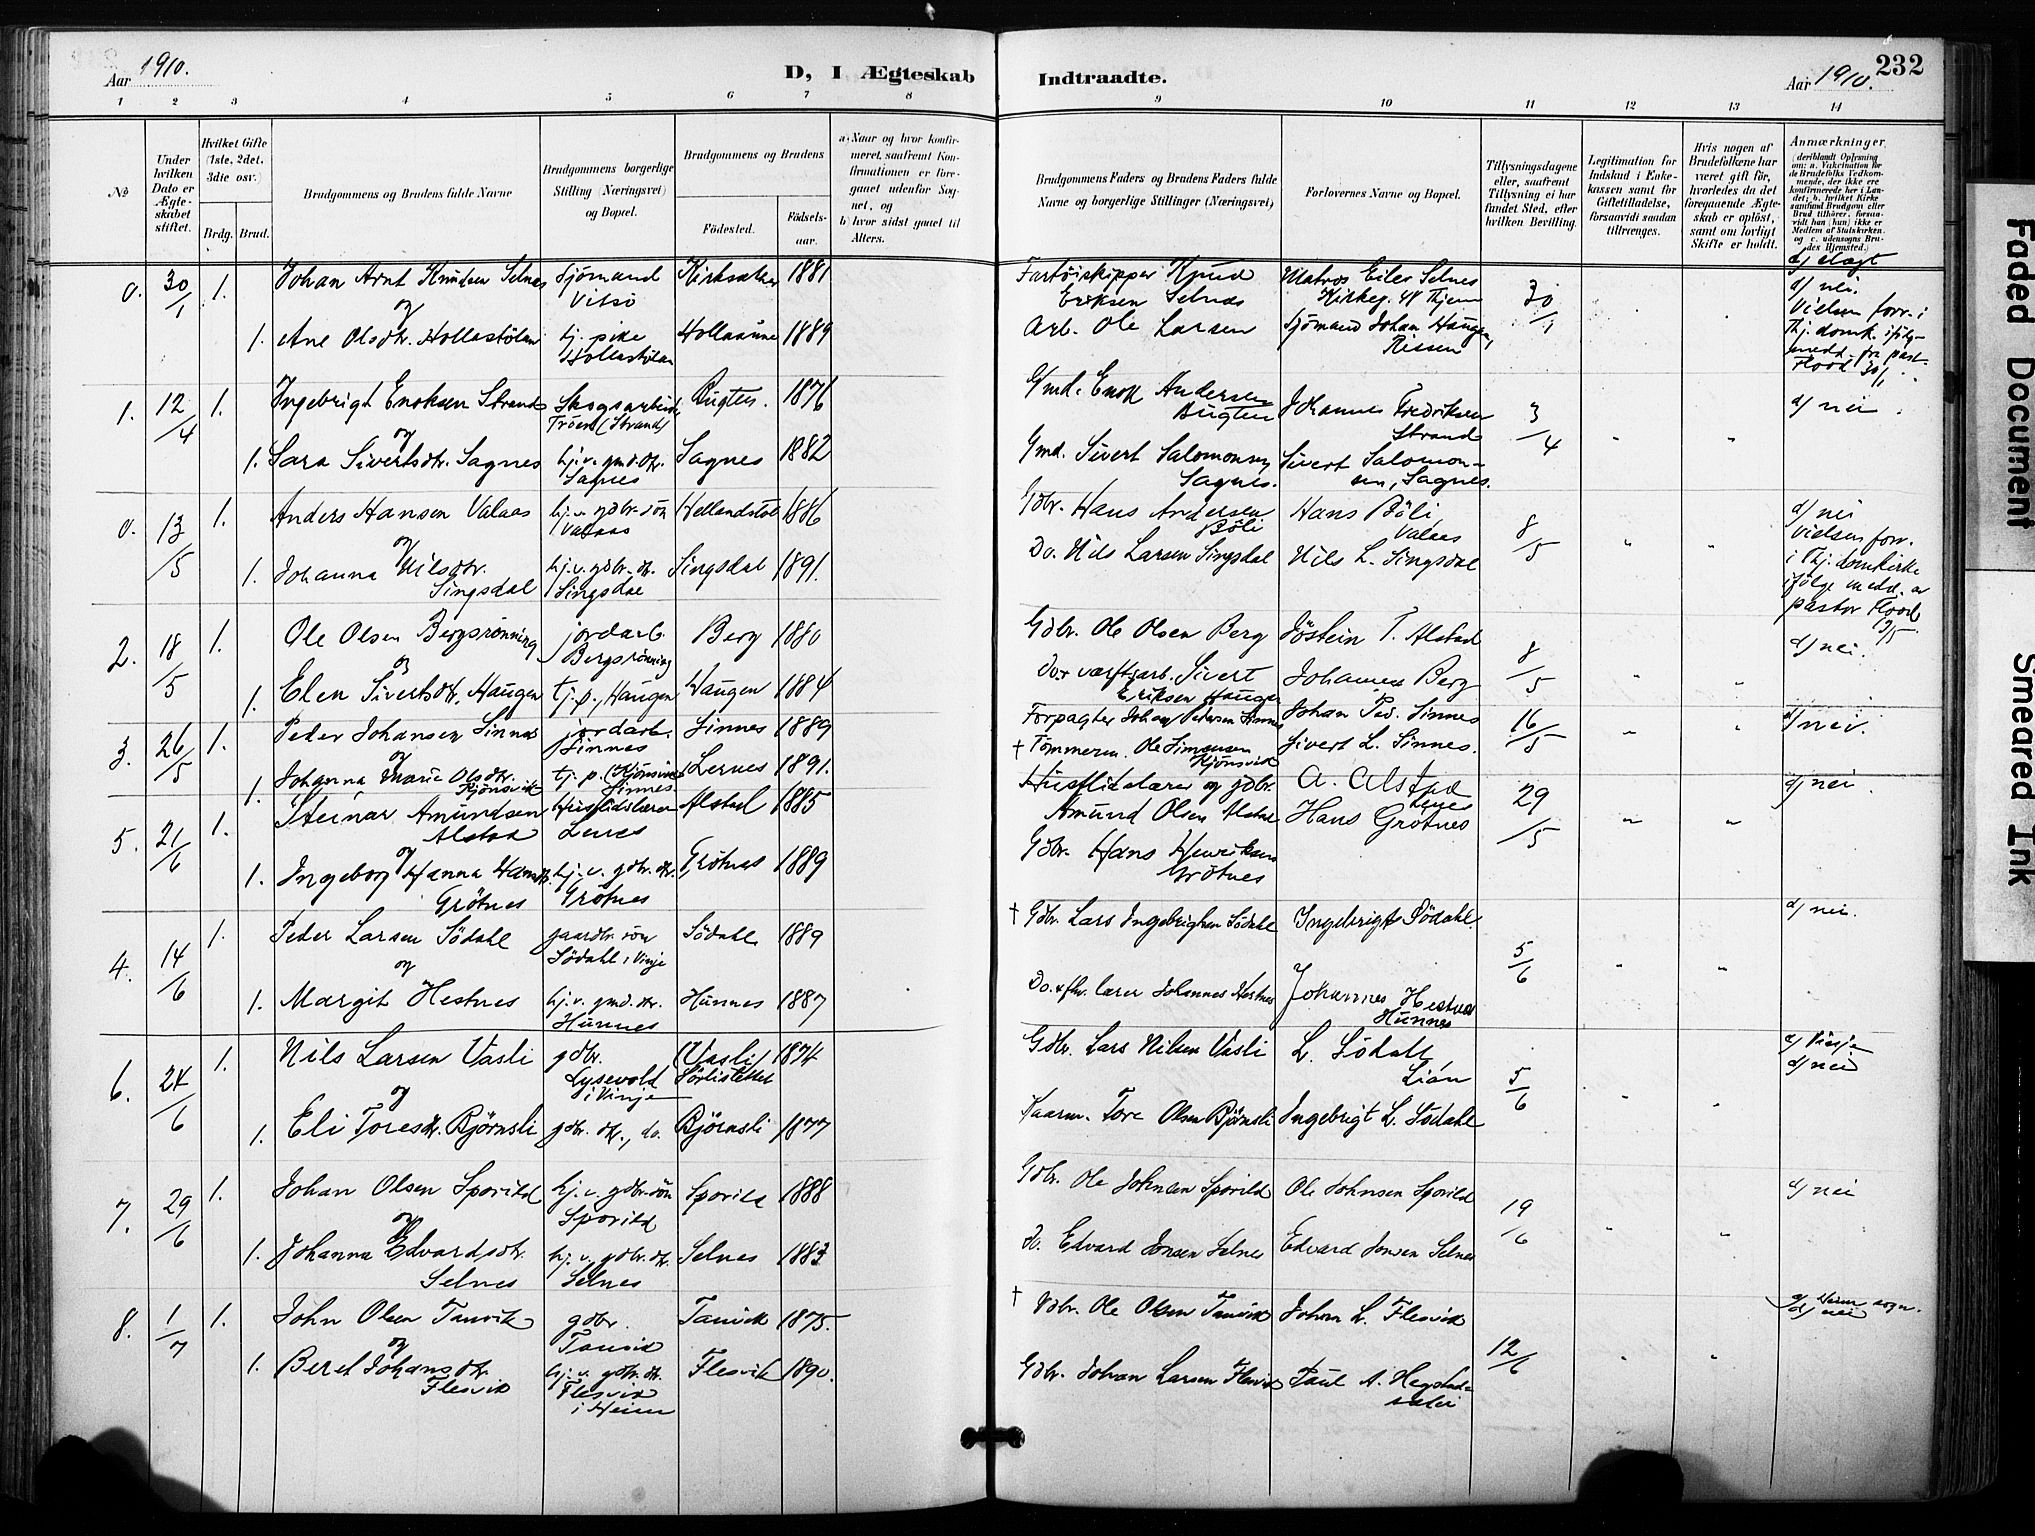 232
Aar 1910.
D, I Ægteskab Indtraadte.
Aar 1910.
1 2 3 4 5 6 7 8 9 10 11 12 13 14
№
Under hvilken Dato er Ægteskabet stiftet.
Hvilket Gifte (1ste, 2det, 3die osv.)
Brdg. Brud.
Brudgommens og Brudens fulde Navne
Brudgommens borgerlige Stilling (Næringsvei) og Bopæl.
Brudgommens og Brudens
Födested. Födselsaar.
a) Naar og hvor konfirmeret, saafremt Konfirmationen er foregaaet udenfor Sognet, og
b) hvor sidst gaaet til Alters.
Brudgommens Faders og Brudens Faders fulde Navne og borgerlige Stillinger (Næringsvei)
Forlovernes Navne og Bopæl.
Tillysningsdagene eller, saafremt Tillysning ei har fundet Sted, efter hvilken Bevilling.
Legitimation for Indskud i Enkekassen samt for Giftetilladelse, forsaavidt saadan tiltrænges.
Hvis nogen af Brudefolkene har været gift för, hvorledes da det foregaaende Ægteskab er oplöst, samt om lovligt Skifte er holdt.
Anmærkninger
0. 30/1 1. Johan Arnt Knudsen Selnes Sjømand Kirksæther 1881 Fartöiskipper Knud Matros
og Vilsö Eriksen Selnæs 30/1 d/ nei.
1. Ane Olsdtr. Hollastölan tj. pike Hollaaune 1889 Arb. Ole Larsen Sjömand Johan Haugen, Vielsen forr. i
Hollastölan Rissen Thj. domk.
1. 12/4 1. Ingebrigt Enoksen Strand Skogsarbeid. Bugten. 1876 Gmd. Enok Andersen Johannes Fredriksen 3/4 d/ nei.
og Tröen (Strand) Bugten Strand
1. Sara Sivertsdtr. Sagnes hj.v. gmd. dtr. Sagnes 1882 Gmd. Sivert Salomonsen Sivert Salomon-
Sagnes Sagnes. sen, Sagnes.
0. 13/5 1. Anders Hansen Valaas hj.v. gdbr. sön 1886 Gdbr. Hans Andersen Hans Böli 8/5 d/ nei
og Valaas Böli Valaas Vielsen forr.
1. Johanna Nilsdtr. hj.v. gdbr. dtr. Singsdal 1891. Do. Nils Larsen Singsdal Nils L. Singsdal i Thj. domkirke
Singsdal Singsdal ifölge medd. av
pastor Flood
2. 18/5 1. Ole Olsen Bergsrönning jordarb. Berg 1880 Gdbr. Ole Olsen Berg Jöstein T. Alstad 8/5 d/ nei.
og Bergsrönning
1. Elen Sivertsdtr. Haugen tj. p., Haugen Haugen 1884 Do. værftsarb. Sivert Johannes Berg
Eriksen Haugen
3. 26/5 1. Peder Johansen Sinnes jordarb. Sinnes 1889 Forpagter Johan Pedersen Sinnes Johan Ped. Sinnes 16/5 d/ nei.
og Sinnes
1. Johanna Marie Olsdtr. tj. p. Lernes 1891. † Tömmerm. Ole Simonsen Sivert L. Sinnes.
Kjönsvik Sinnes Kjönsvik
5. 21/6 1. Steinar Amundsen Husflidslærer Alstad 1885 Husflidslærer og gdbr. A. Alstad 29/5 d/ nei.
Alstad Amund Olsen Alstad Hans Grötnes
og
1. Ingeborg Hanna Hansdtr. hj.v. gdbr. dtr. Grötnes 1889 Gdbr. Hans Henriksen
Grötnes Grötnes Grötnes
4. 14/6 1. Peder Larsen Södahl gaardbr. sön Södahl 1889 † Gdbr. Lars Ingebrigtsen Södahl Ingebrigt Södahl. 5/6 d/ nei.
og Södahl i Vinje
1. Margit Hestnes hj.v. gmd. dtr. Hunnes 1887 Do. lærer Johannes Hestnes Johannes Hestnes
Hunnes Hunnes
6. 24/6 1. Nils Larsen Vasli gdbr. (Vasli) 1874 Gdbr. Lars Nilsen Vasli L. Södahl 5/6 Vinje
og Lysevold Lian d/ nei
i Vinje
1. Eli Toresdtr. Bjørnsli gdbr. dtr., do. Bjørnsli 1877 Kaarm. Tore Olsen Bjørnsli Ingebrigt L. Södahl
7. 29/6 1. Johan Olsen Sporild hj.v. gdbr. sön Sporild 1888 Gdbr. Ole Johnsen Sporild Ole Johnsen Sporild 19/6 d/ nei
og Sporild
1. Johanna Edvardsdtr. hj.v. gdbr. dtr. Selnes 1883 Do. Edvard Jonsen Selnes Edvard Jonsen Selnes
Selnes Selnes
8. 1/7 1. John Olsen Tanvik gdbr. Tanvik 1875. † Gdbr. Ole Olsen Tanvik Johan L. Flesvik 12/6 Heim sogn.
og Tanvik d/ nei
1. Beret Johansdtr. hj.v. gdbr. dtr. Flesvik 1890. Gdbr. Johan Larsen Flesvik Paul A. Hegstad-
Flesvik Flesvik sæter
i Heim
Faded Document
Smeared Ink